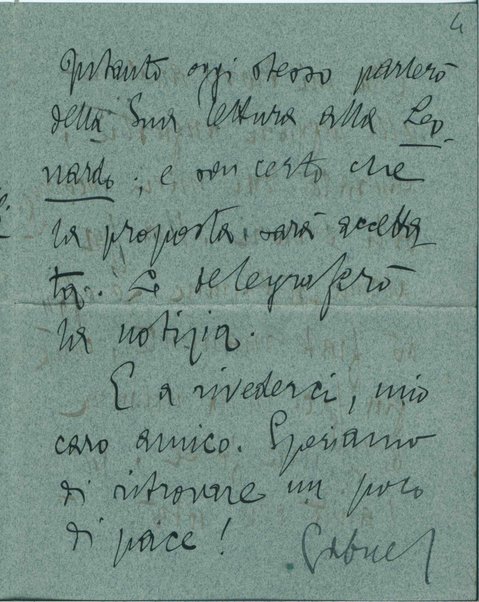 4
Intanto oggi stesso parlerò
della Sua lettura alla Leo-
nardo; e son certo che
la proposta sarà accetta
ta. Le telegraferò
la notizia.
E a rivederci, mio
caro amico. Speriamo
di ritrovare un poco
di pace!
Gabriel